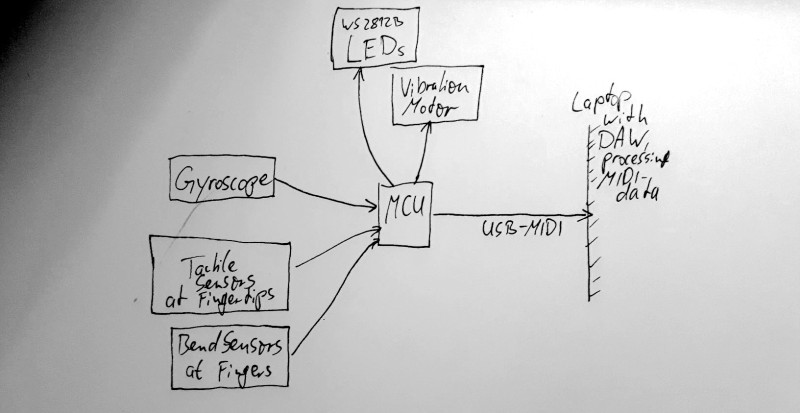 WS2812B
LEDs
Vibration
Motor
Laptop
with
DAW,
processing
MIDI-
data
Gyroscope
MCU
USB-MIDI
Tactile
Sensors
at Fingertips
Bend Sensors
at Fingers